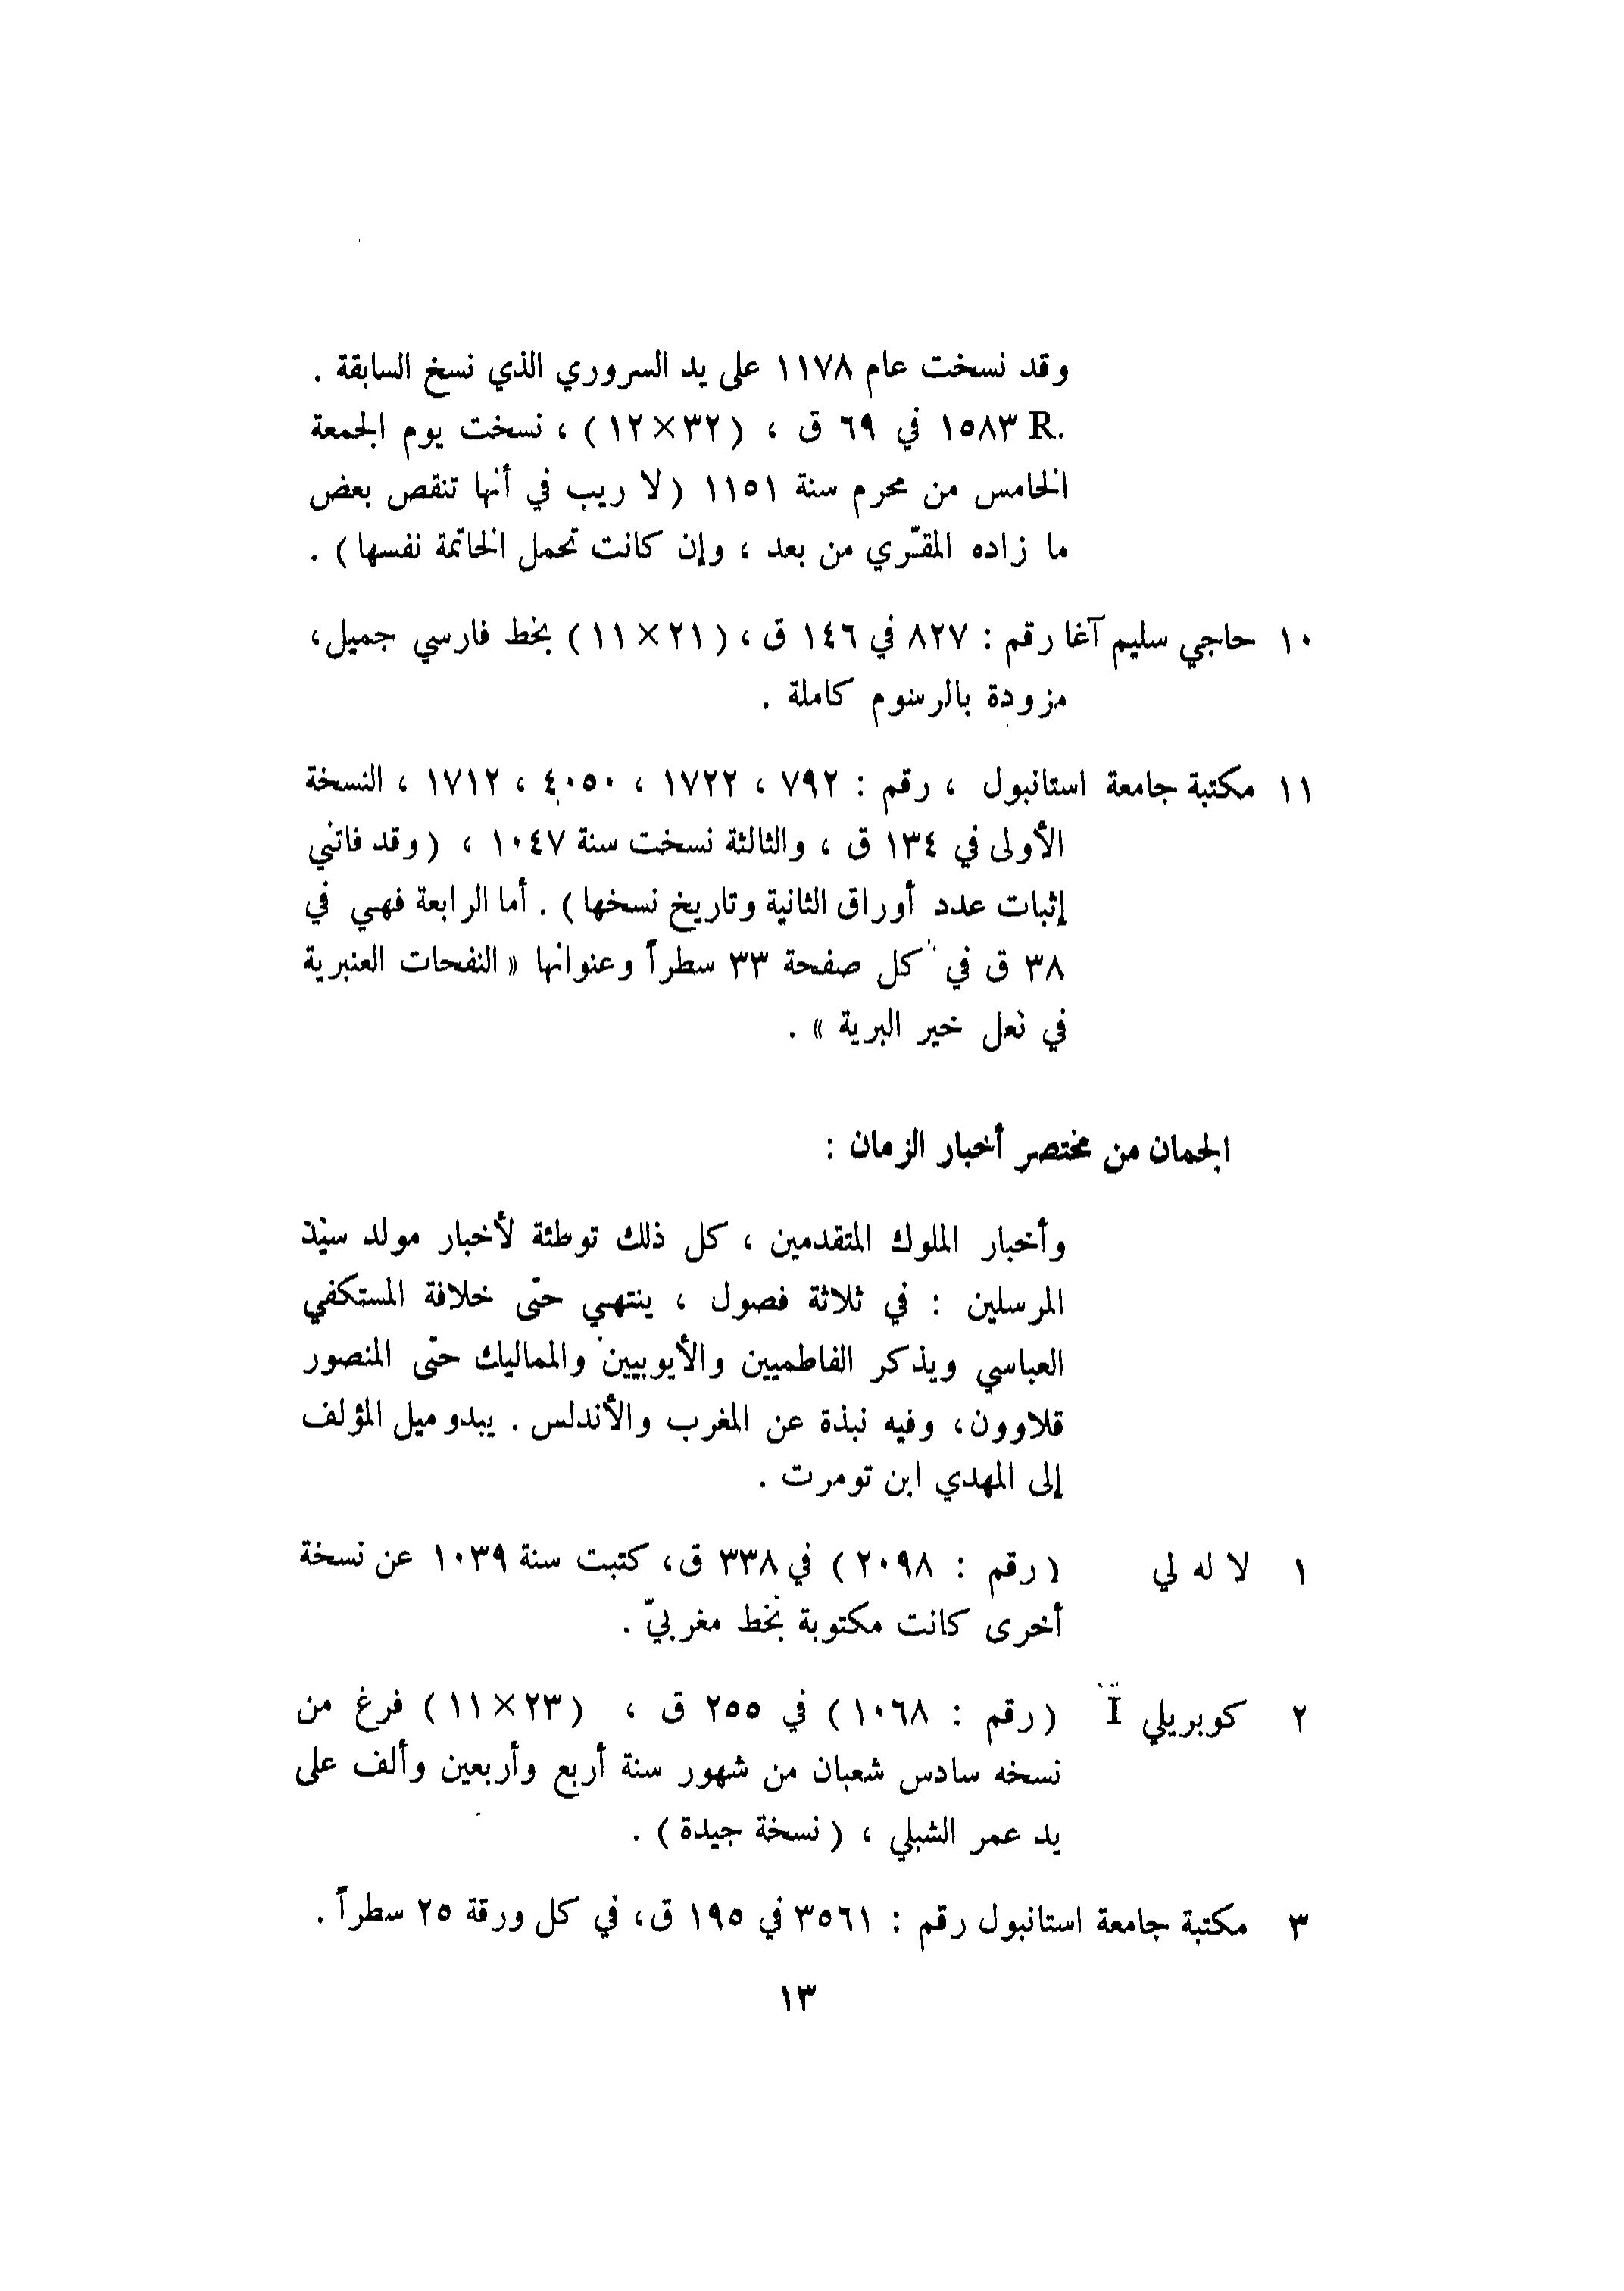 وقد نسخت عام ١١٧٨ على يد السروري الذي نسخ السابقة .
R. ١٥٨٣ في ٦٩ ق ، (٣٢×١٢) ، نسخت يوم الجمعة
الخامس من محرم سنة ١١٥١ (لا ريب في أنها تنقص بعض
ما زاده المقّري من بعد ، وإن كانت تحمل الخاتمة نفسها) .
١٠ حاجي سليم آغا رقم : ٨٢٧ في ١٤٦ ق ، (٢١×١١) بخط فارسي جميل،
مزودة بالرسوم كاملة .
١١ مكتبة جامعة استانبول ، رقم : ٧٩٢ ، ١٧٢٢ ، ٤٠٥٠ ، ١٧١٢ ، النسخة
الأولى في ١٣٤ ق ، والثالثة نسخت سنة ١٠٤٧ ، (وقد فاتني
إثبات عدد أوراق الثانية وتاريخ نسخها) . أما الرابعة فهي في
٣٨ ق في كل صفحة ٣٣ سطراً وعنوانها « النفحات العنبرية
في نعل خير البرية » .
الجمان من مختصر أخبار الزمان :
وأخبار الملوك المتقدمين ، كل ذلك توطئة لأخبار مولد سيّد
المرسلين : في ثلاثة فصول ، ينتهي حتّى خلافة المستكفي
العباسي ويذكر الفاطميين والأيوبيين والمماليك حتّى المنصور
قلاوون، وفيه نبذة عن المغرب والأندلس . يبدو ميل المؤلف
إلى المهدي ابن تومرت .
١ لا له لي (رقم : ٢٠٩٨) في ٣٣٨ ق، كتبت سنة ١٠٣٩ عن نسخة
أخرى كانت مكتوبة بخط مغربيّ .
٢ كوبريلي I (رقم : ١٠٦٨) في ٢٥٥ ق ، (٢٣×١١) فرغ من
نسخه سادس شعبان من شهور سنة أربع وأربعين وألف على
يد عمر الشبلي ، (نسخة جيدة) .
٣ مكتبة جامعة استانبول رقم : ٣٥٦١ في ١٩٥ ق، في كل ورقة ٢٥ سطراً .
١٣